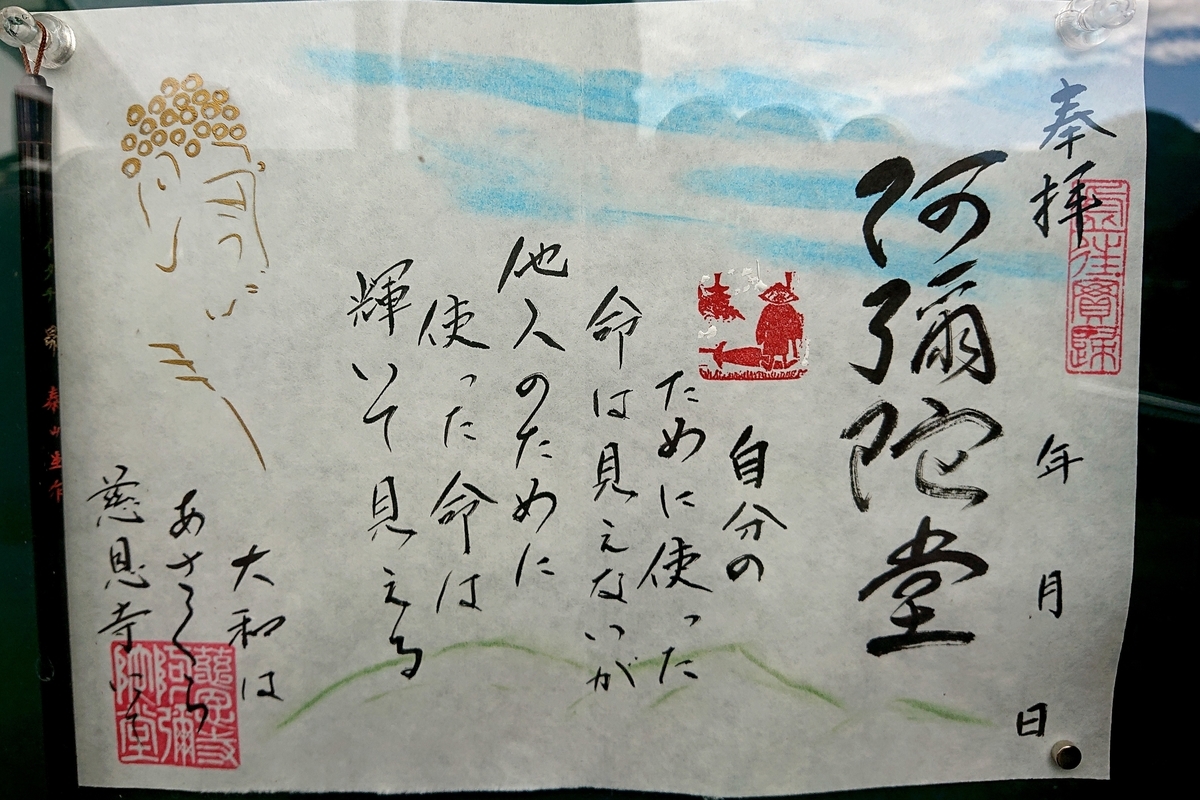 奉拝
年 月 日
阿彌陀堂
自分の
ために使った
命は見えないが
他人のために
使った命は
輝いて見える
大和は
あさくら
慈恩寺